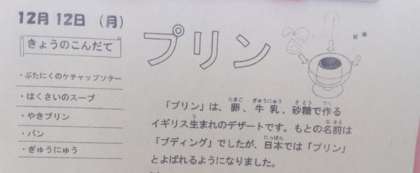 12月12日(月)
きょうのこんだて
・ぶたにくのケチャップソテー
・はくさいのスープ
・やきプリン
・パン
・ぎゅうにゅう
プリン
「プリン」は、卵、牛乳、砂糖で作る
イギリス生まれのデザートです。もとの名前は
「プディング」でしたが、日本では「プリン」
とよばれるようになりました。